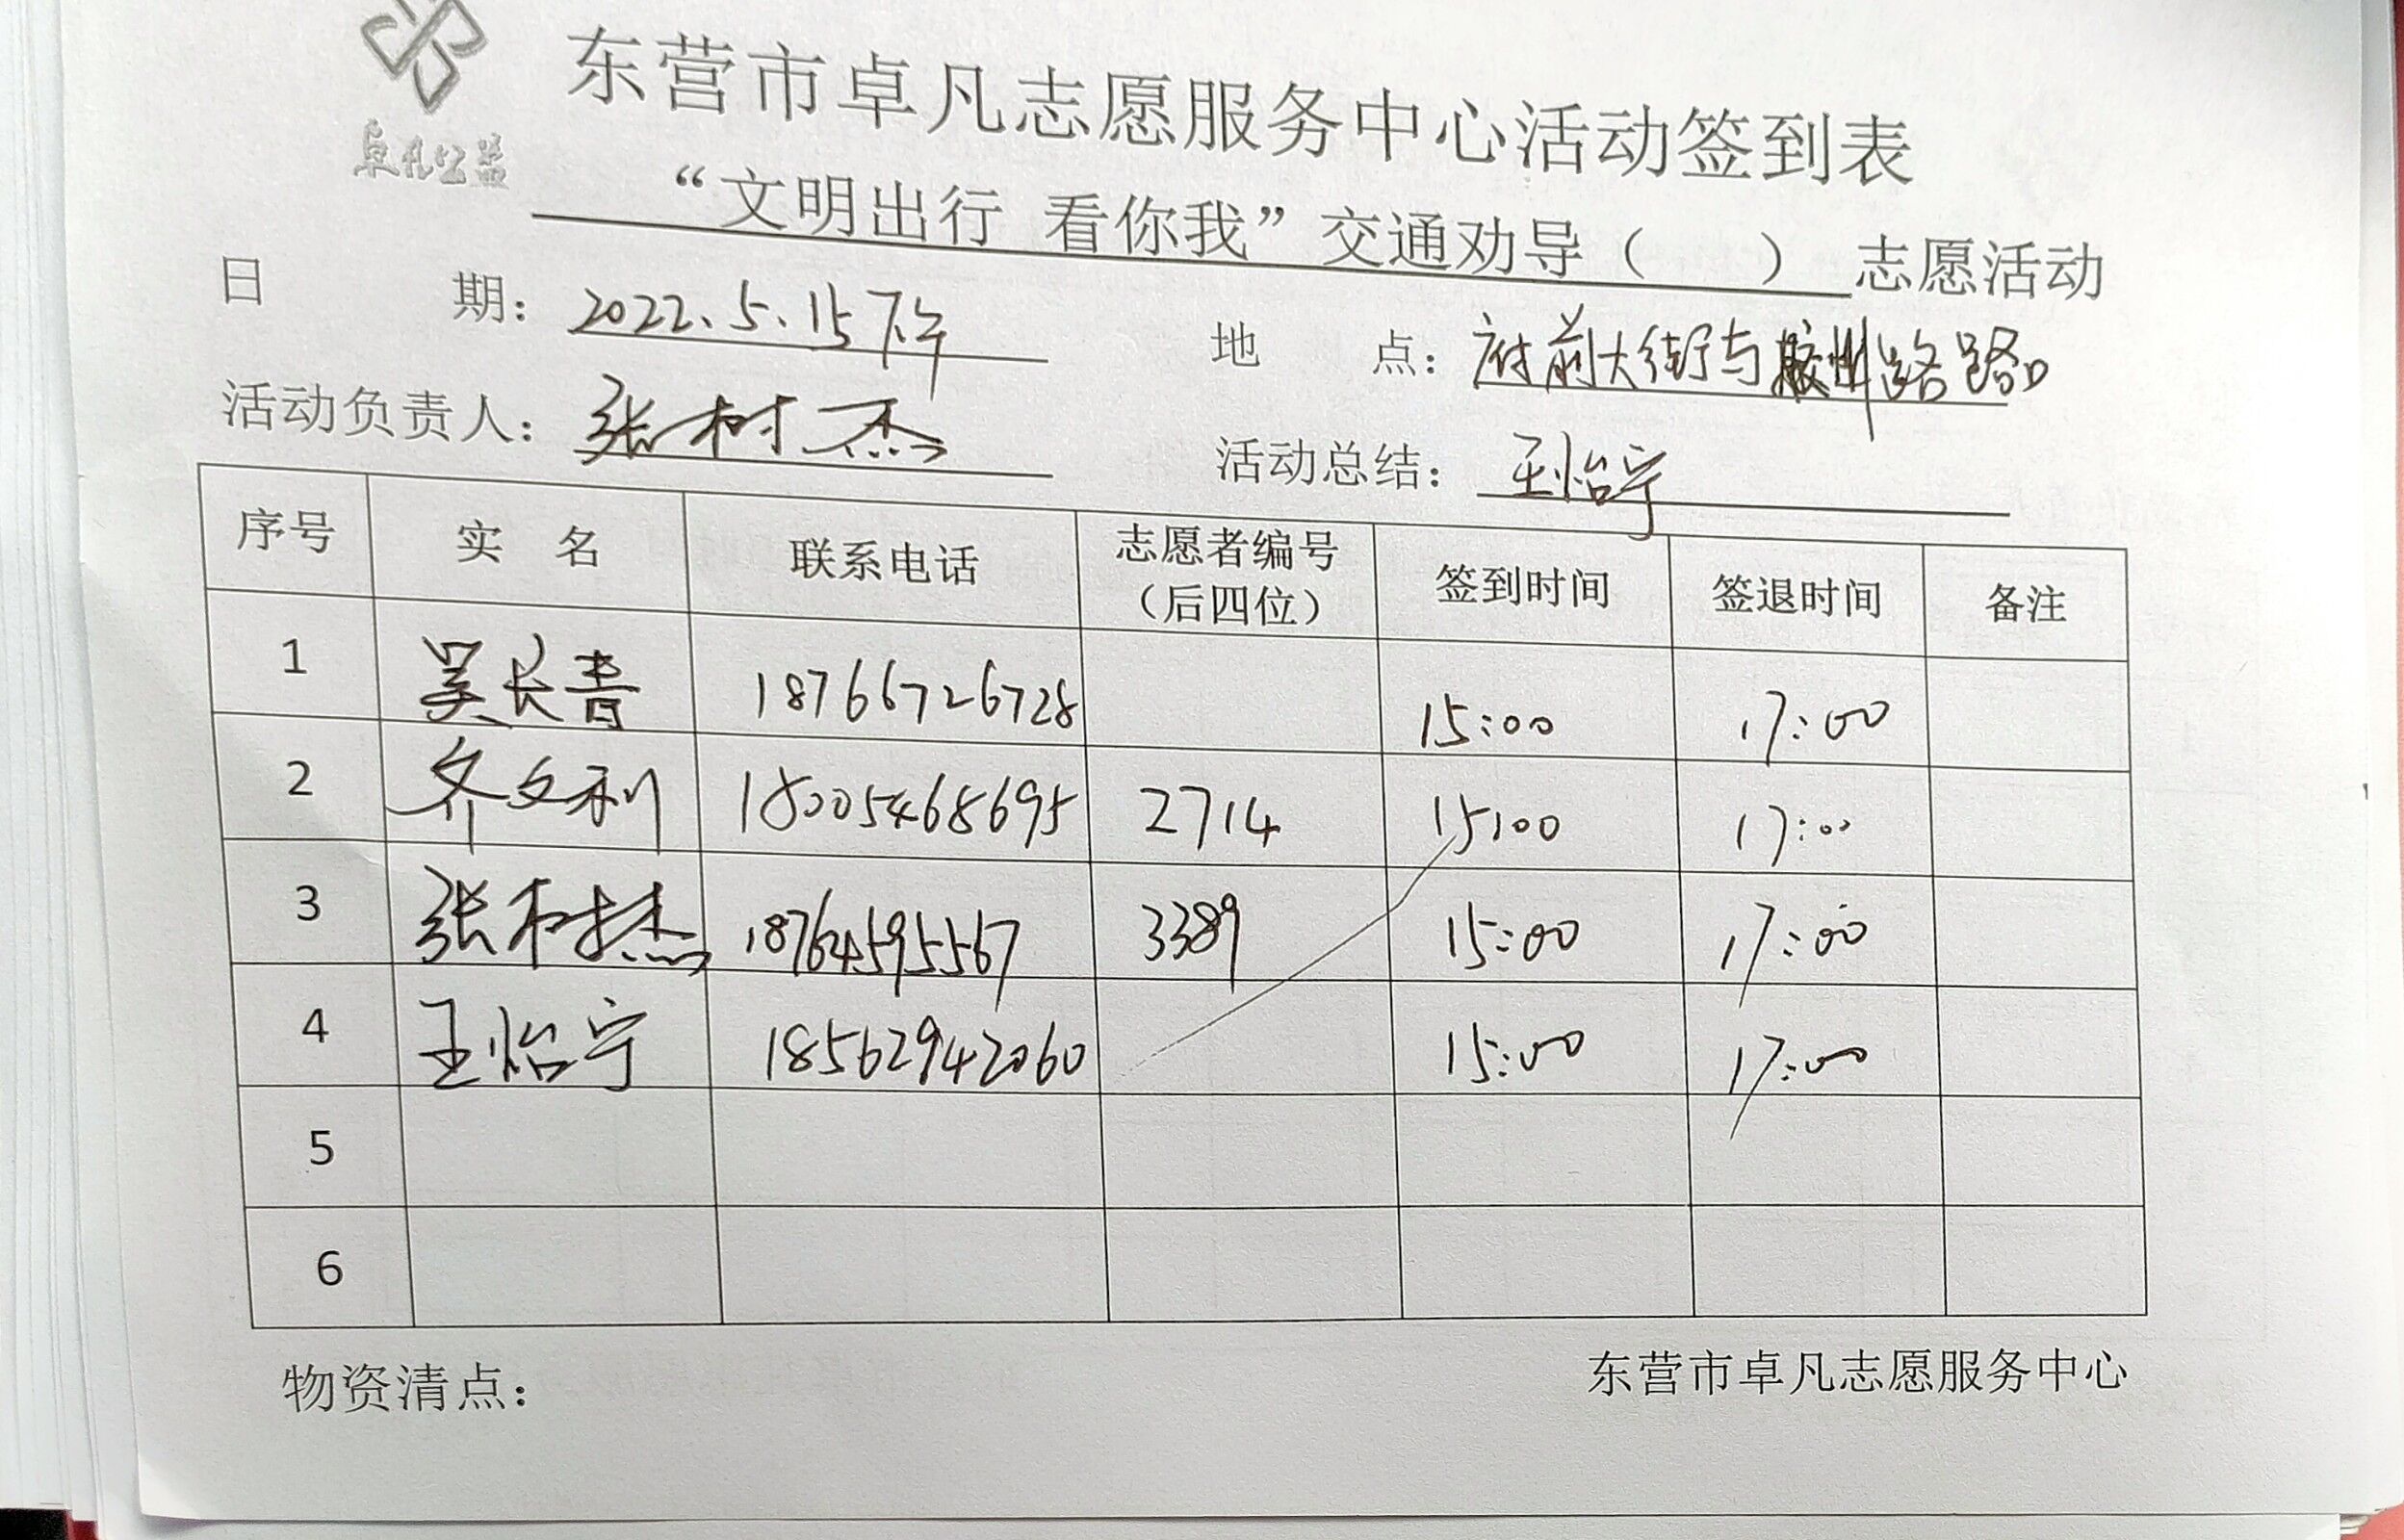 卓凡公益
东营市卓凡志愿服务中心活动签到表
“文明出行 看你我”交通劝导（ ）志愿活动
日 期：2022.5.15下午 地 点：府前大街与胶州路路口
活动负责人：张树杰 活动总结：王怡宁
序号 实 名 联系电话 志愿者编号（后四位） 签到时间 签退时间 备注
1 吴长青 18766726728 15:00 17:00
2 齐文利 18005468695 2714 15:00 17:00
3 张树杰 18764595567 3389 15:00 17:00
4 王怡宁 18562942060 15:00 17:00
5
6
物资清点： 东营市卓凡志愿服务中心